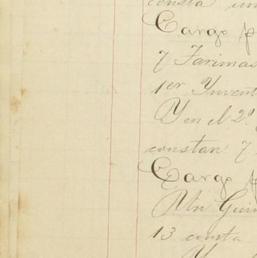 consta un
Cargo p
7 Tarimas
1er Invent
Y en el 2º
constan 7
Cargo p
Un Guin
13 consta